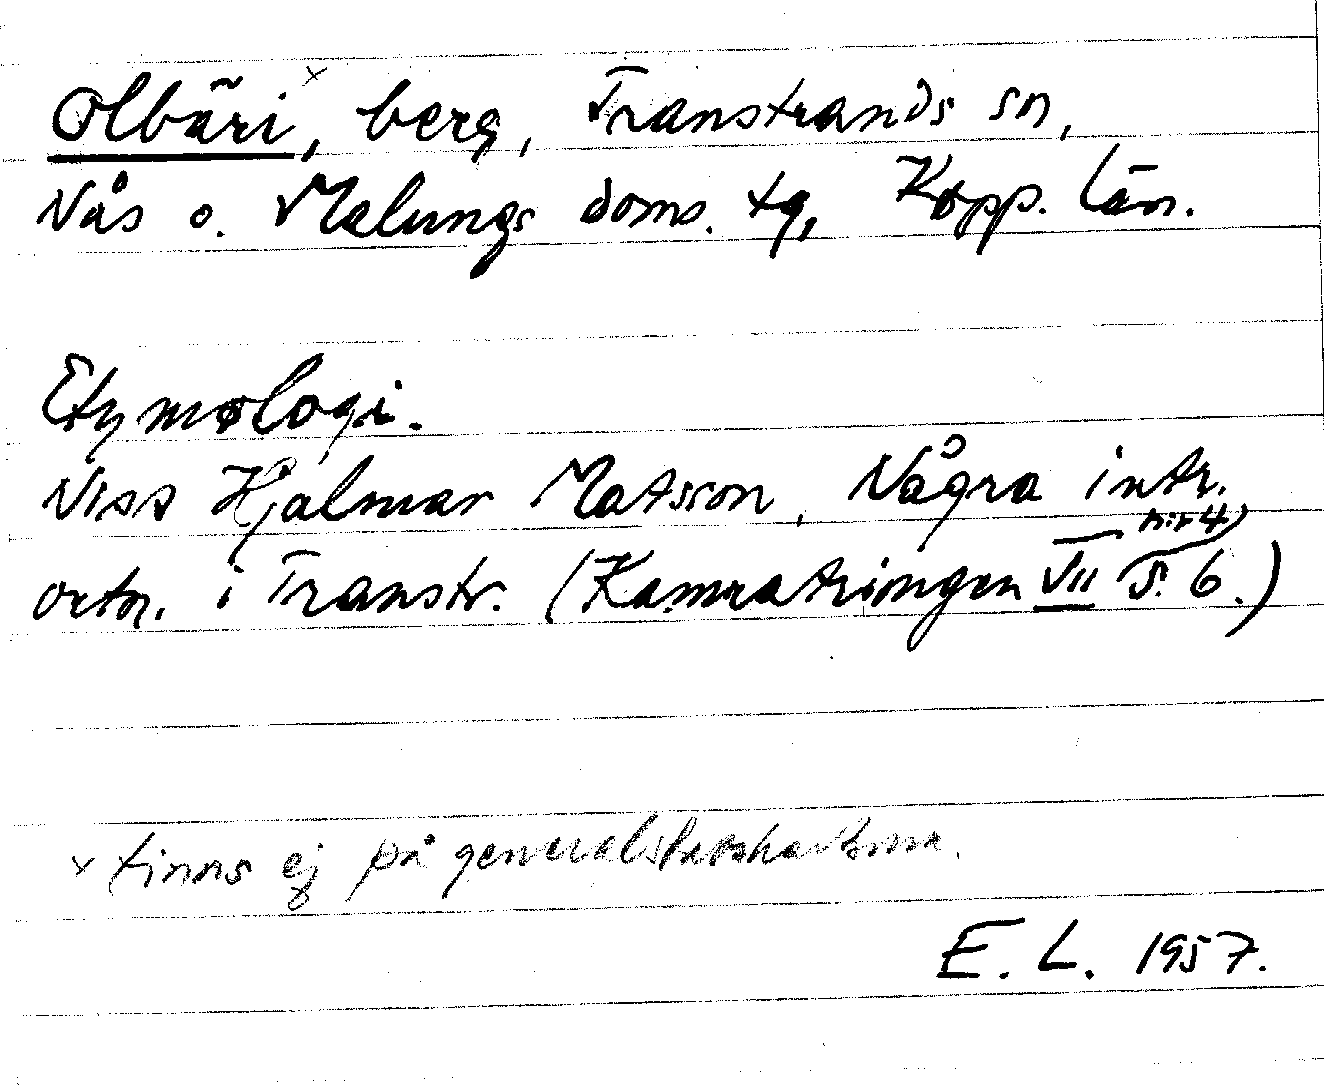 Olbäri ×, berg, Transtrands sn,
Nås o. Malungs doms. tg, Kopp. län.
Etymologi.
Viss Hjalmar Matsson, Några intr.
ortn. i Transtr. (Kamratringen VII nr 4) s. 6.)
× finns ej på generalstabskartorna.
E. L. 1957.